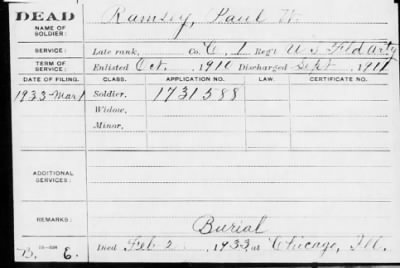 DEAD Ramsey, Paul W.
NAME OF
SOLDIER:
SERVICE: Late rank, Co. C, 1 Reg't U S Fld Arty
TERM OF
SERVICE: Enlisted Oct. 1910 Discharged Sept 1911
DATE OF FILING. CLASS. APPLICATION NO. LAW. CERTIFICATE NO.
1933-Mar 1 Soldier. 1731588
Widow.
Minor.
ADDITIONAL
SERVICES:
REMARKS: Burial
Died Feb 2 1933 at Chicago, Ill.